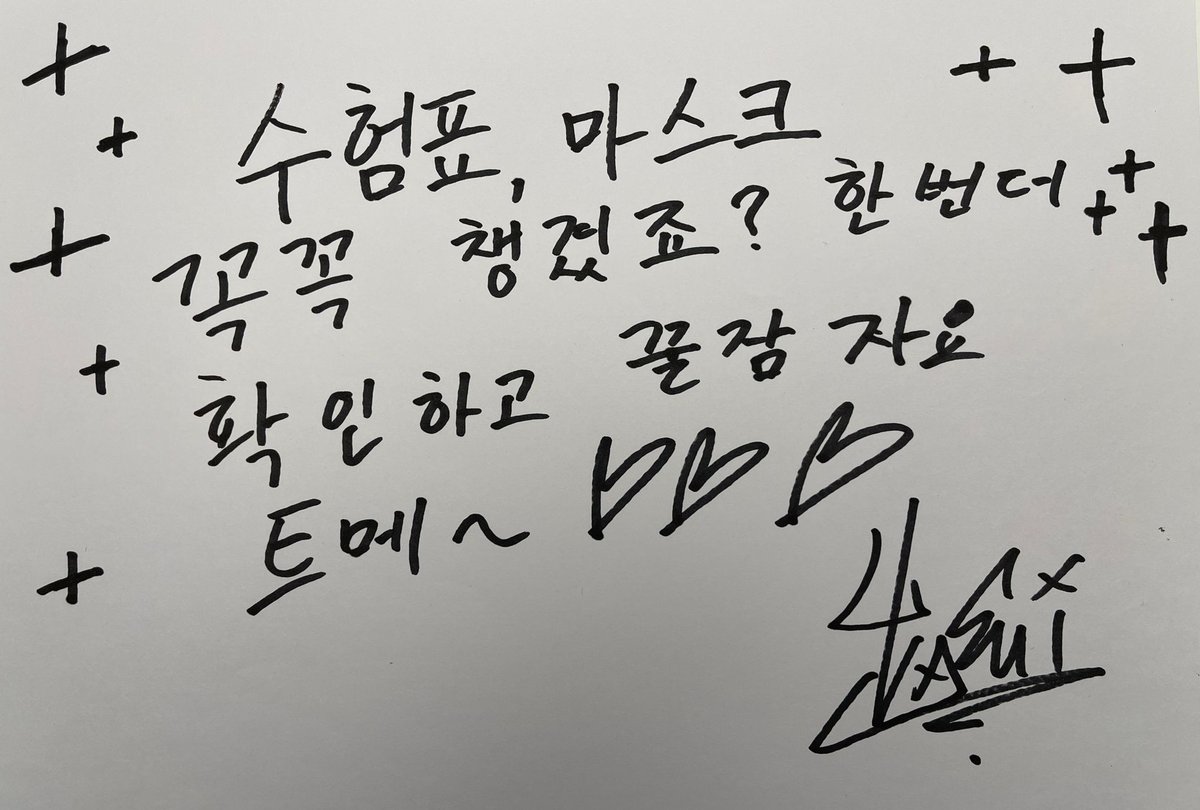 수험표, 마스크
꼭꼭 챙겼죠? 한번더
확인하고 꿀잠 자요
트메~ ♡♡♡